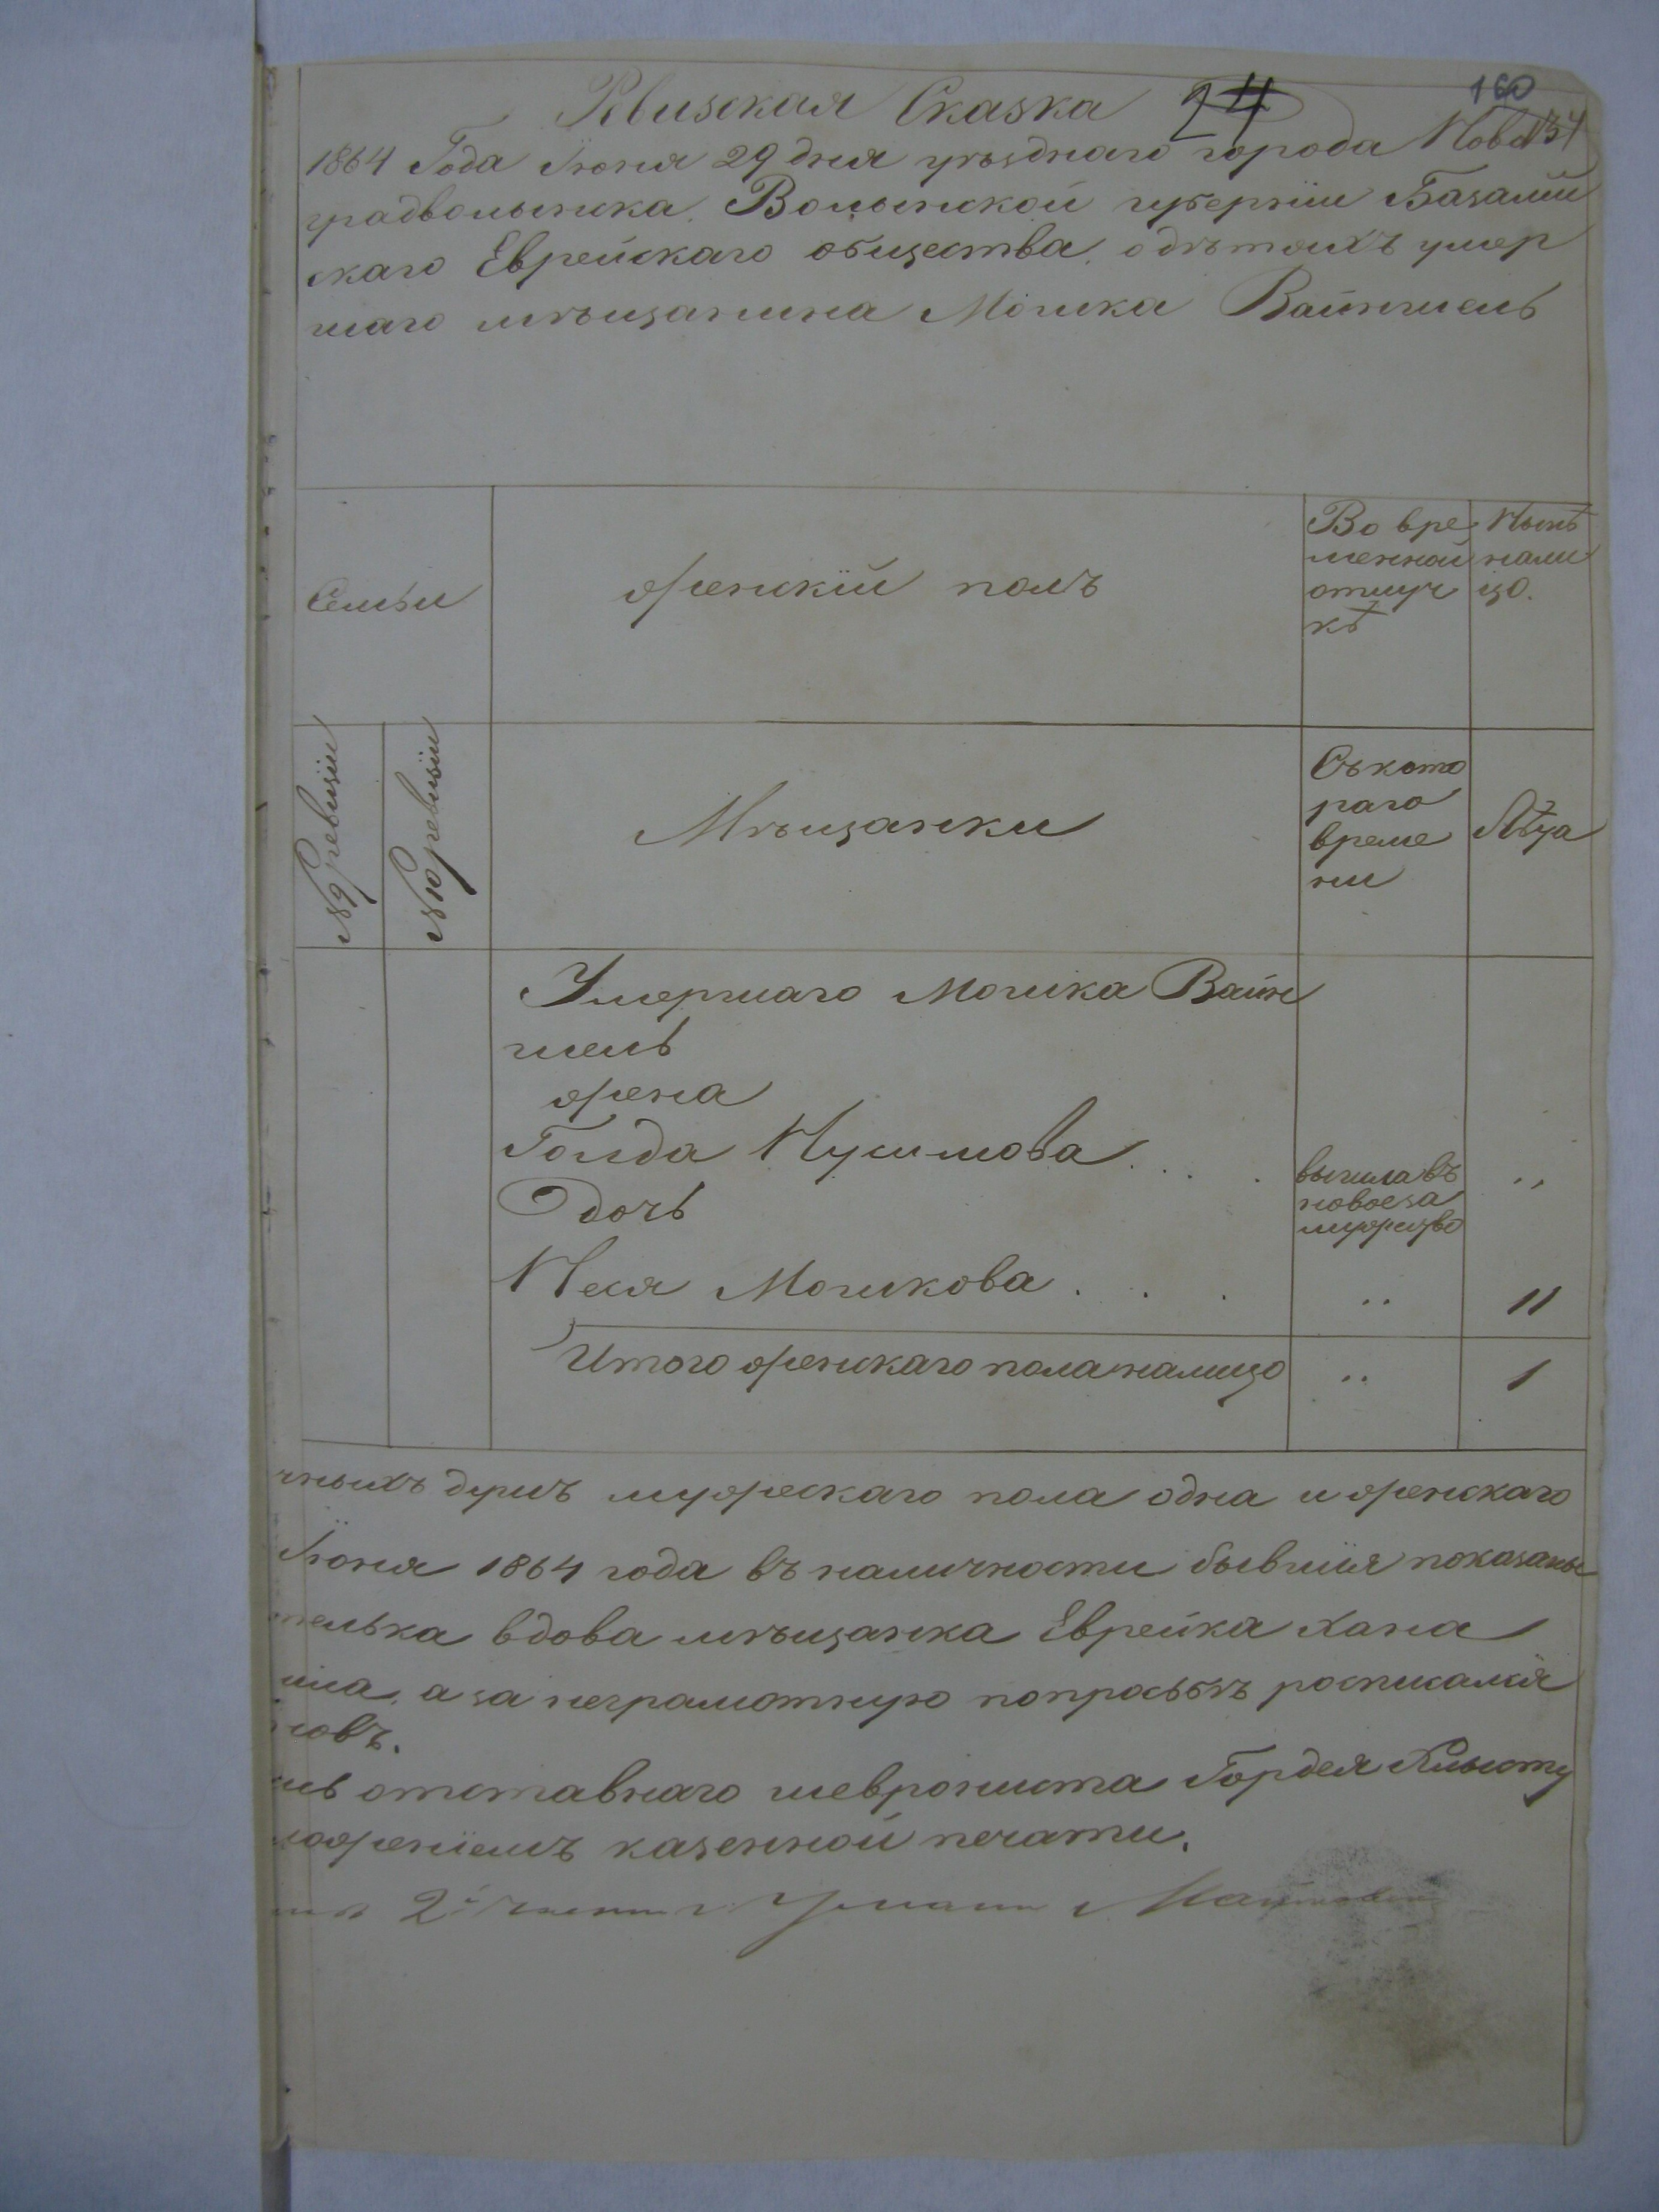 Ревизская Сказка 24 160
1864 Года Іюня 29 дня уѣзднаго города Ново 134
градволынска Волынской губерніи Базалій
скаго Еврейскаго общества, о дѣтяхъ умер
шаго мѣщанина Мошка Вайншель
Семьи
Женскій полъ
Во вре
менной
отлуч
кѣ
Нынѣ
нали
цо.
№ 9 ревизіи
№ 10 ревизіи
Мѣщанки
Съ кото
раго
време
ни
Лѣта
Умершаго Мошка Вайн
шель
жена
Голда Нусимова . . .
вышла въ
новое за
мужство
„
Дочь
Неся Мошкова . . .
„
11
Итого женскаго пола налицо
„
1
чныхъ душъ мужескаго пола одна и женскаго
Іюня 1864 года въ наличности бывшія показаны
телька вдова мѣщанка Еврейка Хана
ила, а за неграмотную по просьбѣ росписался
новъ.
отставнаго шеврониста Гордея
ложеніемъ казенной печати.
2й части